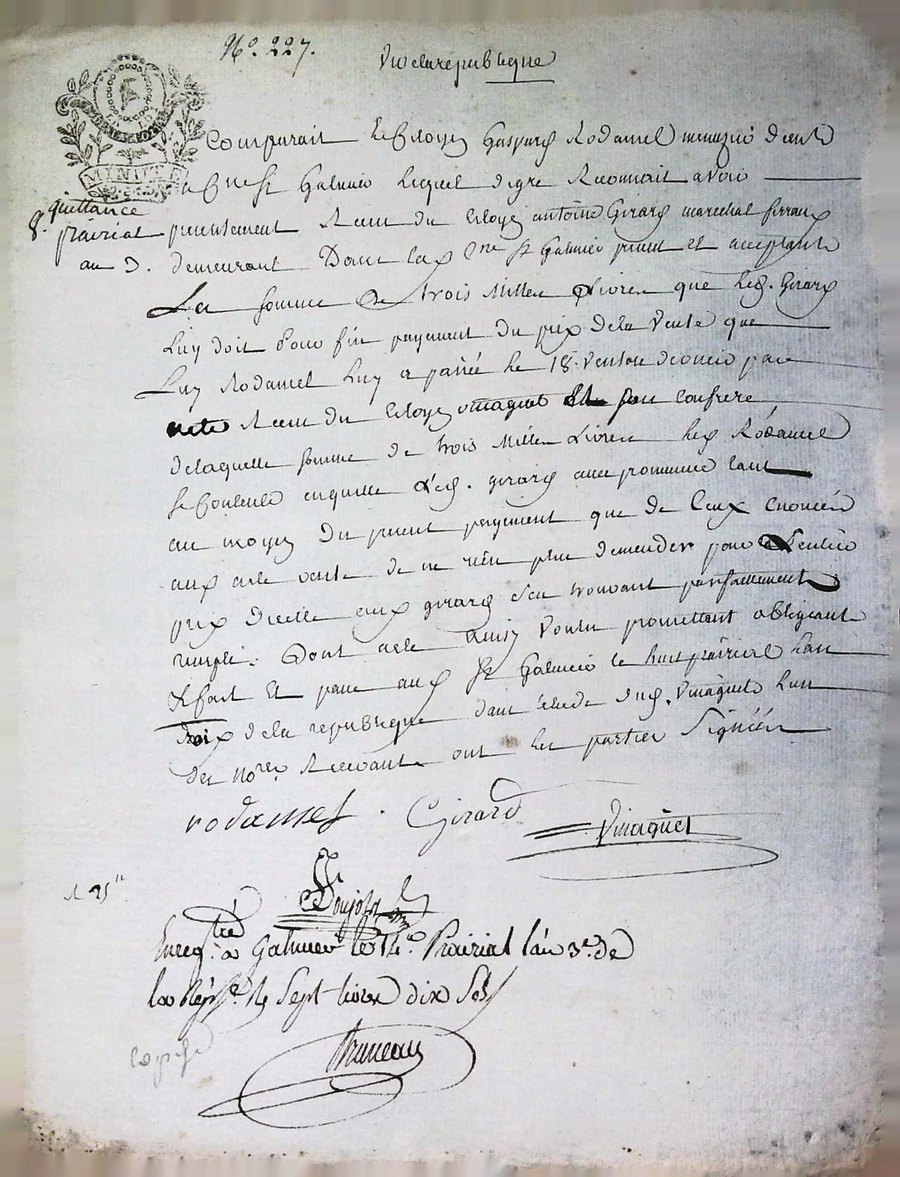 N°. 227.
Vive la république
MINUTE
Comparait le Citoyen Gaspard Rodamel menuzié
a Cne St Galmié lequel de gré Reconnait avoir
quittance
8. prairial
an 3.
présentement Receu du Citoyen antoine Girard marechal ferrant
demeurant Dans la Cne St Galmier présent et acceptante
La somme de trois Milles Livres que led. Girard
Luy doit pour fin payement du prix de la Vente que
Luy Rodamel Luy a passée le 18. Ventose dernier par
acte Receu du Citoyen Vinaguet Son confrere
de laquelle somme de trois Milles Livres led Rodamel
se Contente en quitte Led. girard avec promesse tant
au moyen du présent payement que de Ceux enoncés
aux acte vente de ne rien plus demander pour L'entier
prix d'icelle aud girard s'en trouvant parfaitement
rempli. Dont acte Ainsy Voulu promettant obligeant
fait et passé aud St Galmié le huit prairial L'an
trois de la republique dans L'etude dud. Vinaguet L'un
des no.res Recevants ont les parties Signées
rodamel. Girard
Vinaguet
R 25 ll
Enregtré. à Galmier le 14e. Prairial l'an 3e. de
la Répque. R Sept livres dix Sols
Bruneau